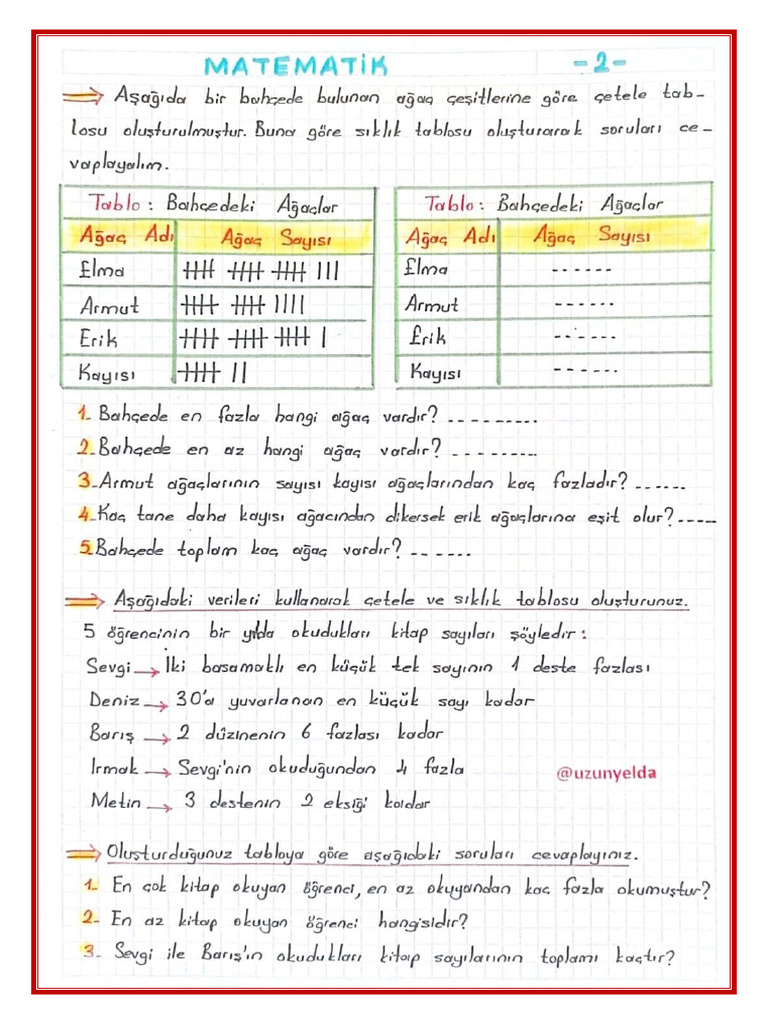 MATEMATİK -2-
Aşağıda bir bahçede bulunan ağaç çeşitlerine göre çetele tab-
losu oluşturulmuştur. Buna göre sıklık tablosu oluşturarak soruları ce-
vaplayalım.
Tablo: Bahçedeki Ağaçlar
Ağaç Adı Ağaç Sayısı
Elma
Armut
Erik
Kayısı
Tablo: Bahçedeki Ağaçlar
Ağaç Adı Ağaç Sayısı
Elma ------
Armut ------
Erik ------
Kayısı ------
1. Bahçede en fazla hangi ağaç vardır? ---------
2. Bahçede en az hangi ağaç vardır? ---------
3. Armut ağaçlarının sayısı kayısı ağaçlarından kaç fazladır? ------
4. Kaç tane daha kayısı ağacından dikersek erik ağaçlarına eşit olur? -----
5. Bahçede toplam kaç ağaç vardır? ------
Aşağıdaki verileri kullanarak çetele ve sıklık tablosu oluşturunuz.
5 öğrencinin bir yılda okudukları kitap sayıları şöyledir:
Sevgi → İki basamaklı en küçük tek sayının 1 deste fazlası
Deniz → 30'a yuvarlanan en küçük sayı kadar
Barış → 2 düzinenin 6 fazlası kadar
Irmak → Sevgi'nin okuduğundan 4 fazla
@uzunyelda
Metin → 3 destenin 2 eksiği kadar
Oluşturduğunuz tabloya göre aşağıdaki soruları cevaplayınız.
1- En çok kitap okuyan öğrenci, en az okuyandan kaç fazla okumuştur?
2- En az kitap okuyan öğrenci hangisidir?
3- Sevgi ile Barış'ın okudukları kitap sayılarının toplamı kaçtır?